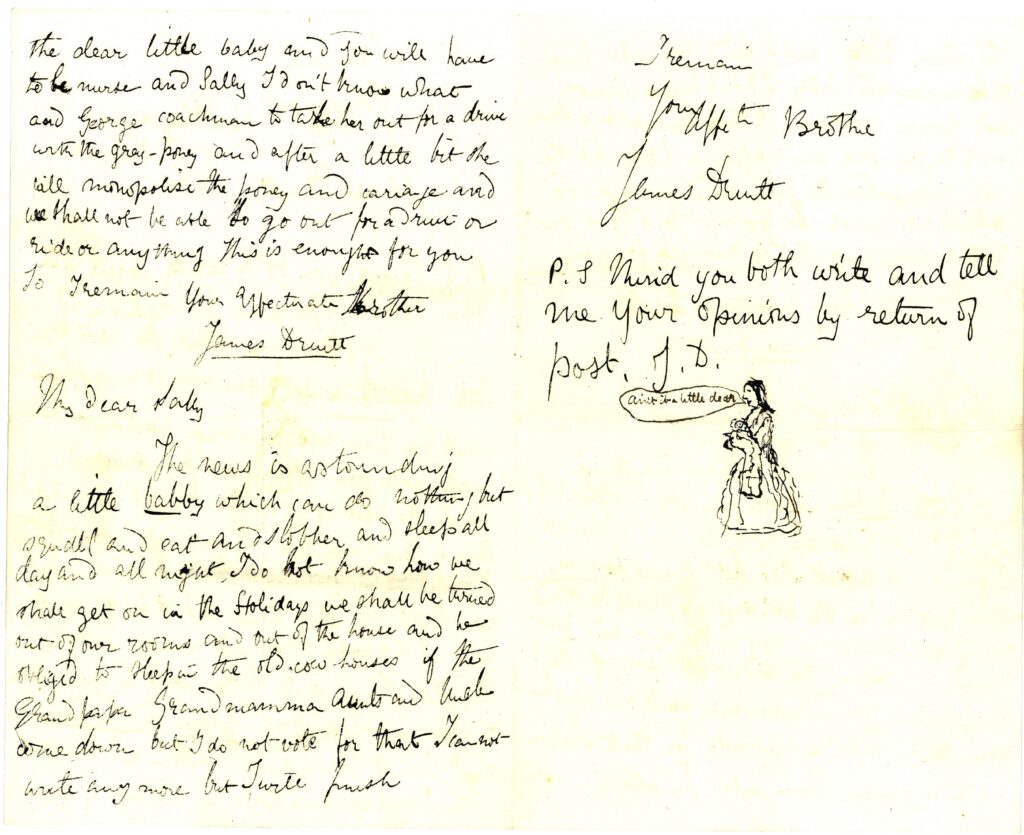 the dear little baby and you will have
to be nurse and Sally I don't know what
and George coachman to take her out for a drive
with the gray-poney and after a little bit she
will monopolise the poney and cariage and
we shall not be able to go out for a drive or
ride or anything This is enough for you
To Tremain Your Affectuate Brother
James Druitt
My dear Sally
The news is astounding
a little babby which can do nothing but
squall and eat and slobber and sleep all
day and all night I do not know how we
shall get on in the Holidays we shall be turned
out of our rooms and out of the house and be
obliged to sleep in the old cow houses if the
Grandpapa Grandmamma Aunts and Uncle
come down but I do not vote for that I can not
write any more but I will finish
Tremain
Your
Affeth Brothe
James Druitt
P.S Mind you both write and tell
me your opinions by return of
post. J. D.
ain't it a little dear